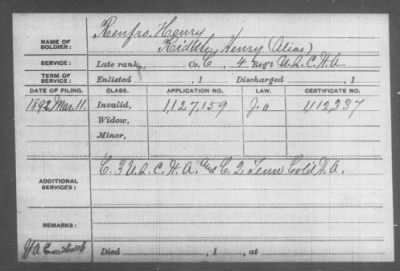 NAME OF SOLDIER: Renfro, Henry
Ridley, Henry (Alias)
SERVICE: Late rank, Co. C, 4 Reg't U.S.C.H.A.
TERM OF SERVICE: Enlisted , 1 Discharged , 1
DATE OF FILING. CLASS. APPLICATION NO. CERTIFICATE NO.
1892 Mar. 11. Invalid, 1,127,159 1,112,337
Widow,
Minor,
ADDITIONAL SERVICES: C. 3 U.S.C.H.A. and C. 2 Tenn Col'd H.A.
REMARKS:
Died , 1 , at